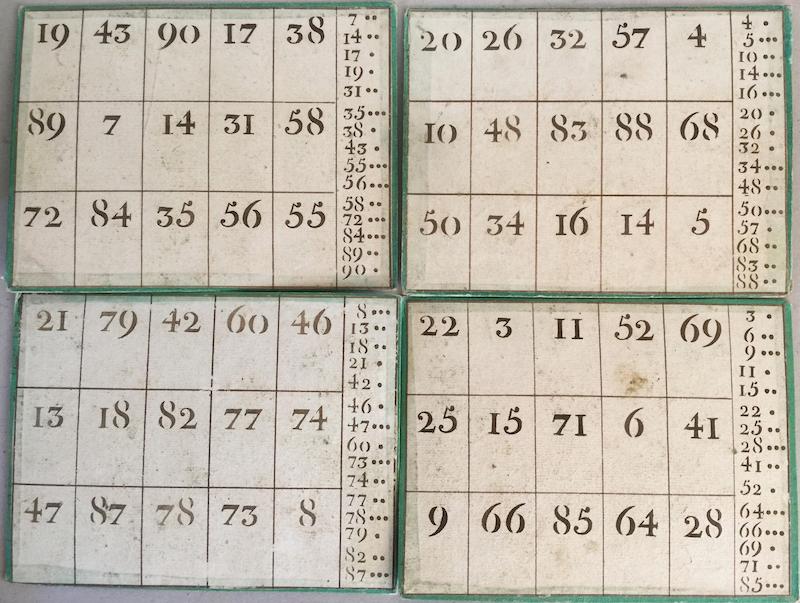 19 43 90 17 38
89 7 14 31 58
72 84 35 56 55
7
14
17
19
31
35
38
43
55
56
58
72
84
89
90
20 26 32 57 4
10 48 83 88 68
50 34 16 14 5
4
5
10
14
16
20
26
32
34
48
50
57
68
83
88
21 79 42 60 46
13 18 82 77 74
47 87 78 73 8
8
13
18
21
42
46
47
60
73
74
77
78
79
82
87
22 3 11 52 69
25 15 71 6 41
9 66 85 64 28
3
6
9
11
15
22
25
28
41
52
64
66
69
71
85